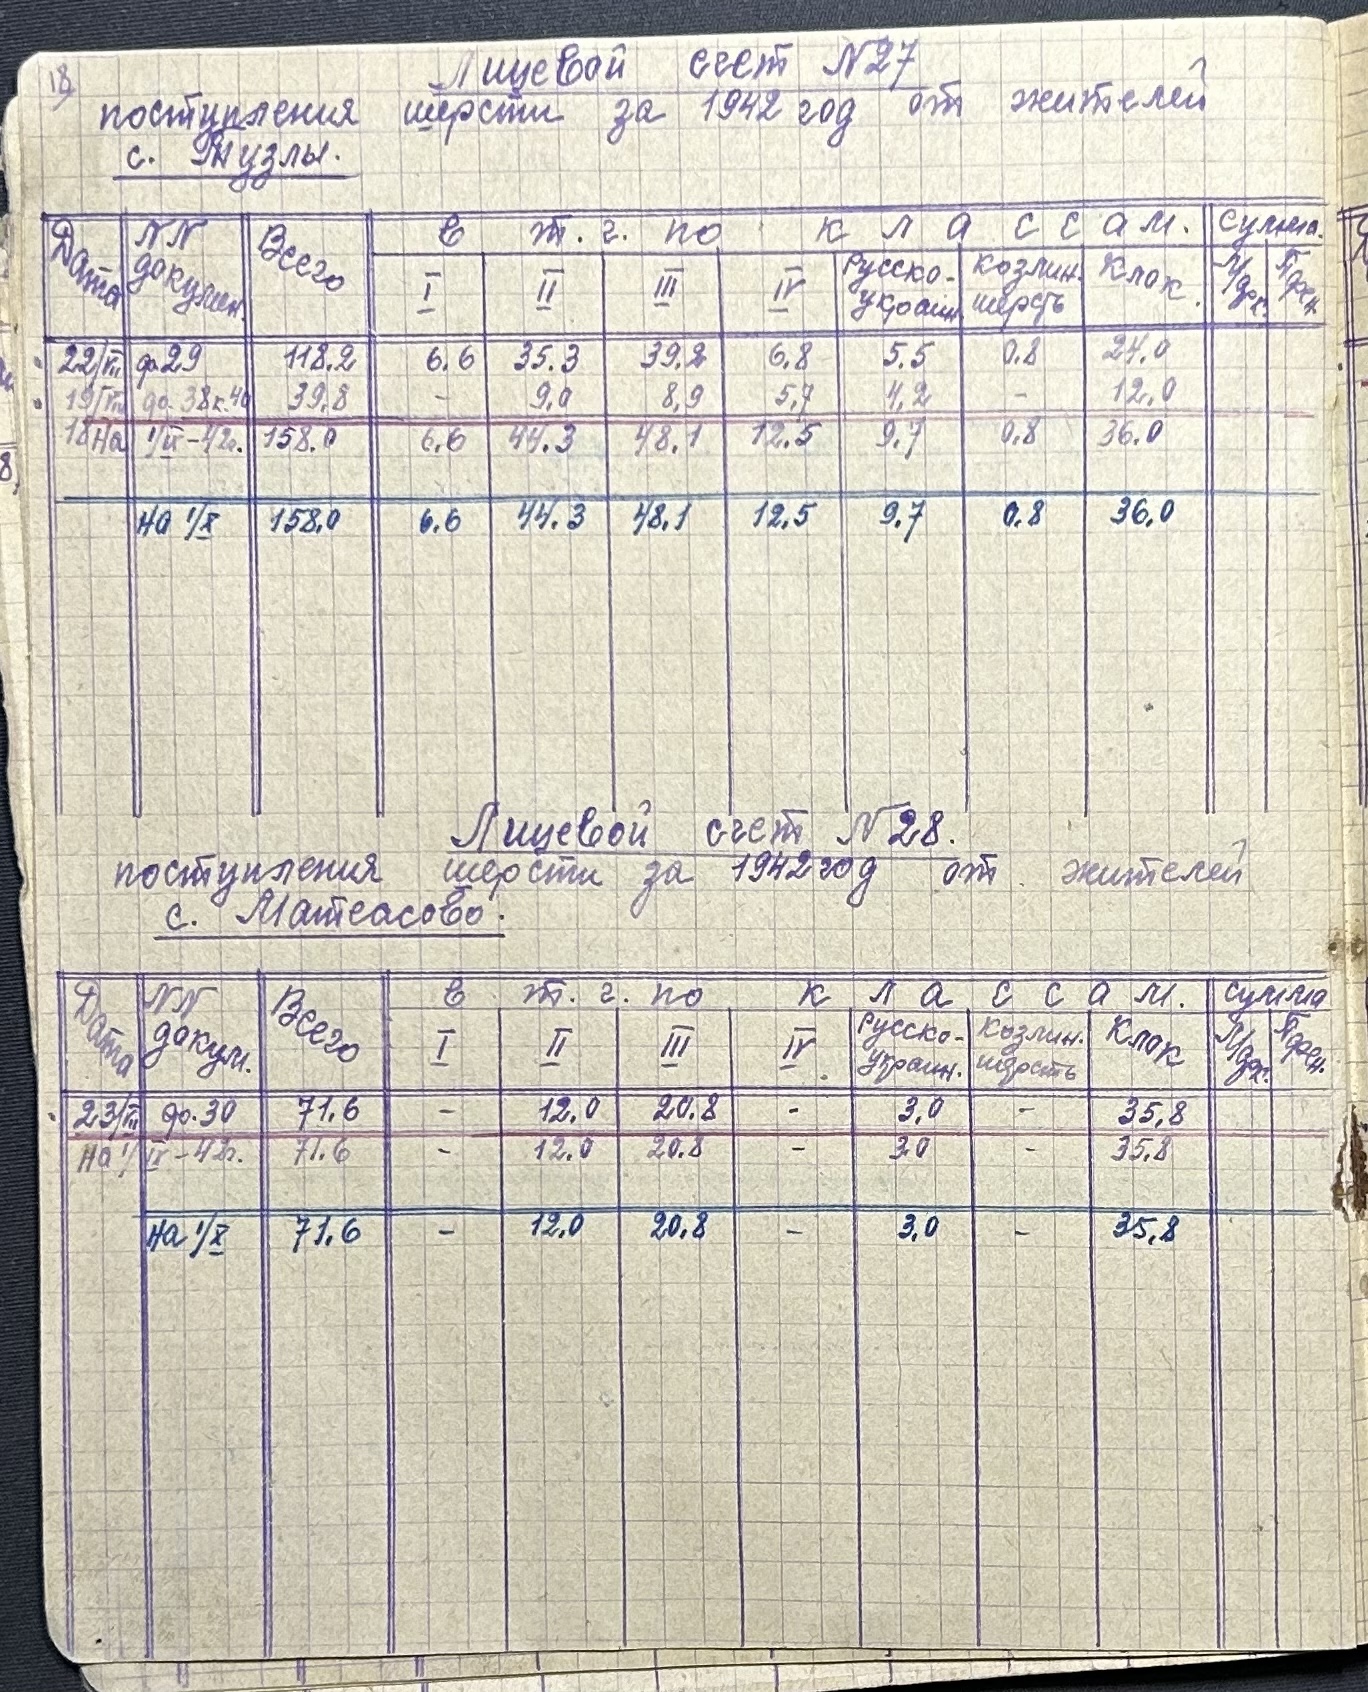 18
Лицевой счет N27
поступления шерсти за 1942 год от жителей
с. Тузлы.
Дата NN докумен. Всего в т. г. по классам. сумма.
I II III IV Русско-украин. козлин. шерсть Клок
22/VII до 29 118.2 6.6 35.3 39.2 6.8 5.5 0.8 24.0
19/VIII до. 38 к. 40 39.8 - 9.0 8,9 5,7 4,2 - 12.0
18 На 1/IX-42г. 158.0 6.6 44.3 48.1 12.5 9.7 0.8 36.0
На 1/X 158.0 6.6 44.3 48.1 12.5 9.7 0.8 36.0
Лицевой счет N28.
поступления шерсти за 1942 год от жителей
с. Матеасово.
Дата NN докум. Всего в т. г. по классам. сумма
I II III IV Русско-украин. козлин. шерсть Клок
23/VII до. 30 71.6 - 12.0 20.8 - 3,0 - 35,8
На 1/IX-42г. 71.6 - 12.0 20.8 - 3.0 - 35.8
На 1/X 71.6 - 12.0 20.8 - 3,0 - 35,8